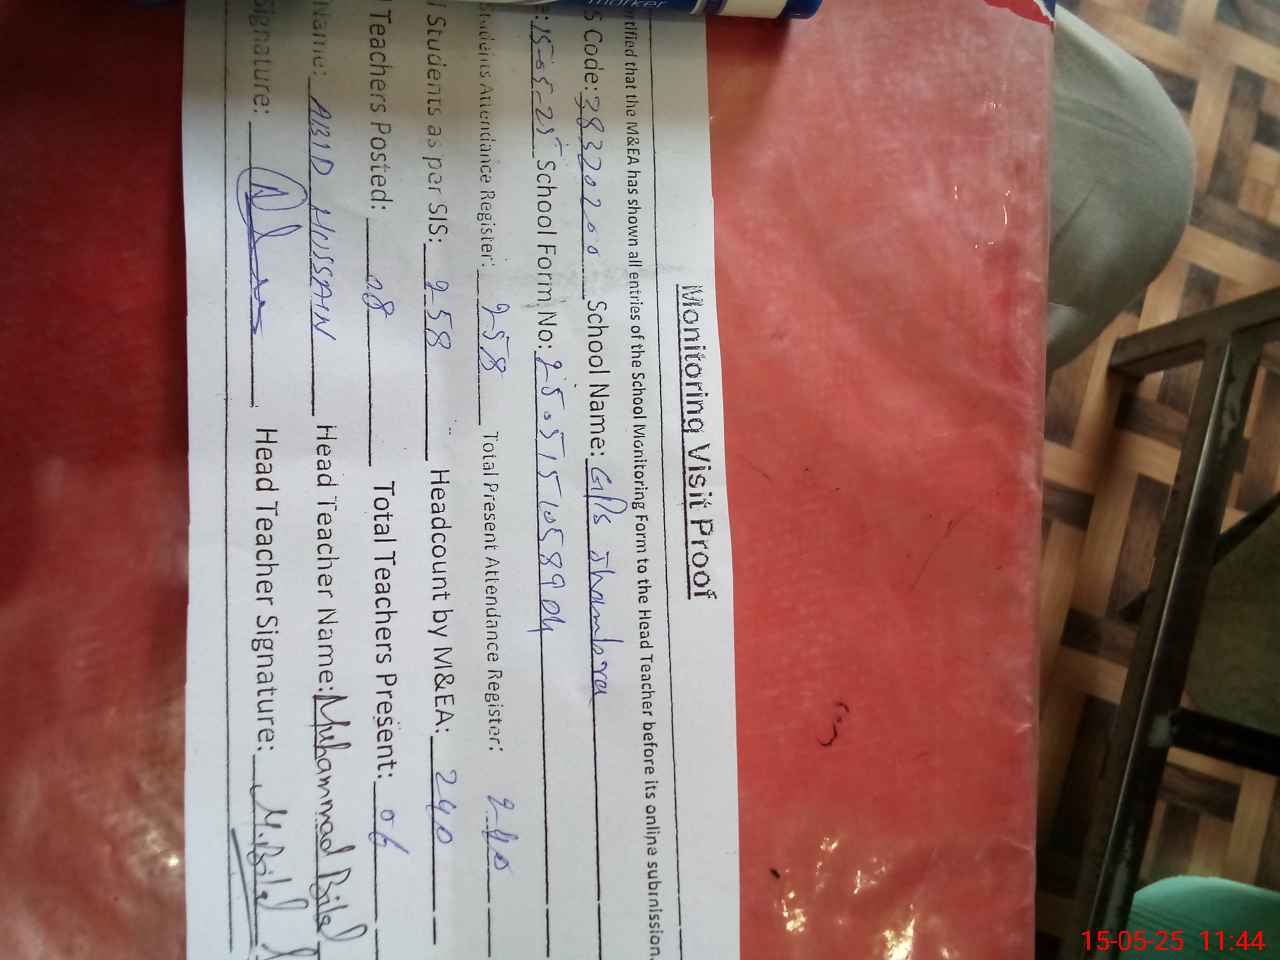 marker
Monitoring Visit Proof
rtified that the M&EA has shown all entries of the School Monitoring Form to the Head Teacher before its online submission.
S Code: 38320200 School Name: GPS Jhambra
: 15-05-25 School Form No: 2505151058904
Students Attendance Register: 258 Total Present Attendance Register: 240
l Students as per SIS: 258 Headcount by M&EA: 240
l Teachers Posted: 08 Total Teachers Present: 06
Name: ABID HUSSAIN Head Teacher Name: Muhammad Bilal
Signature: Head Teacher Signature: M.Bilal
15-05-25 11:44